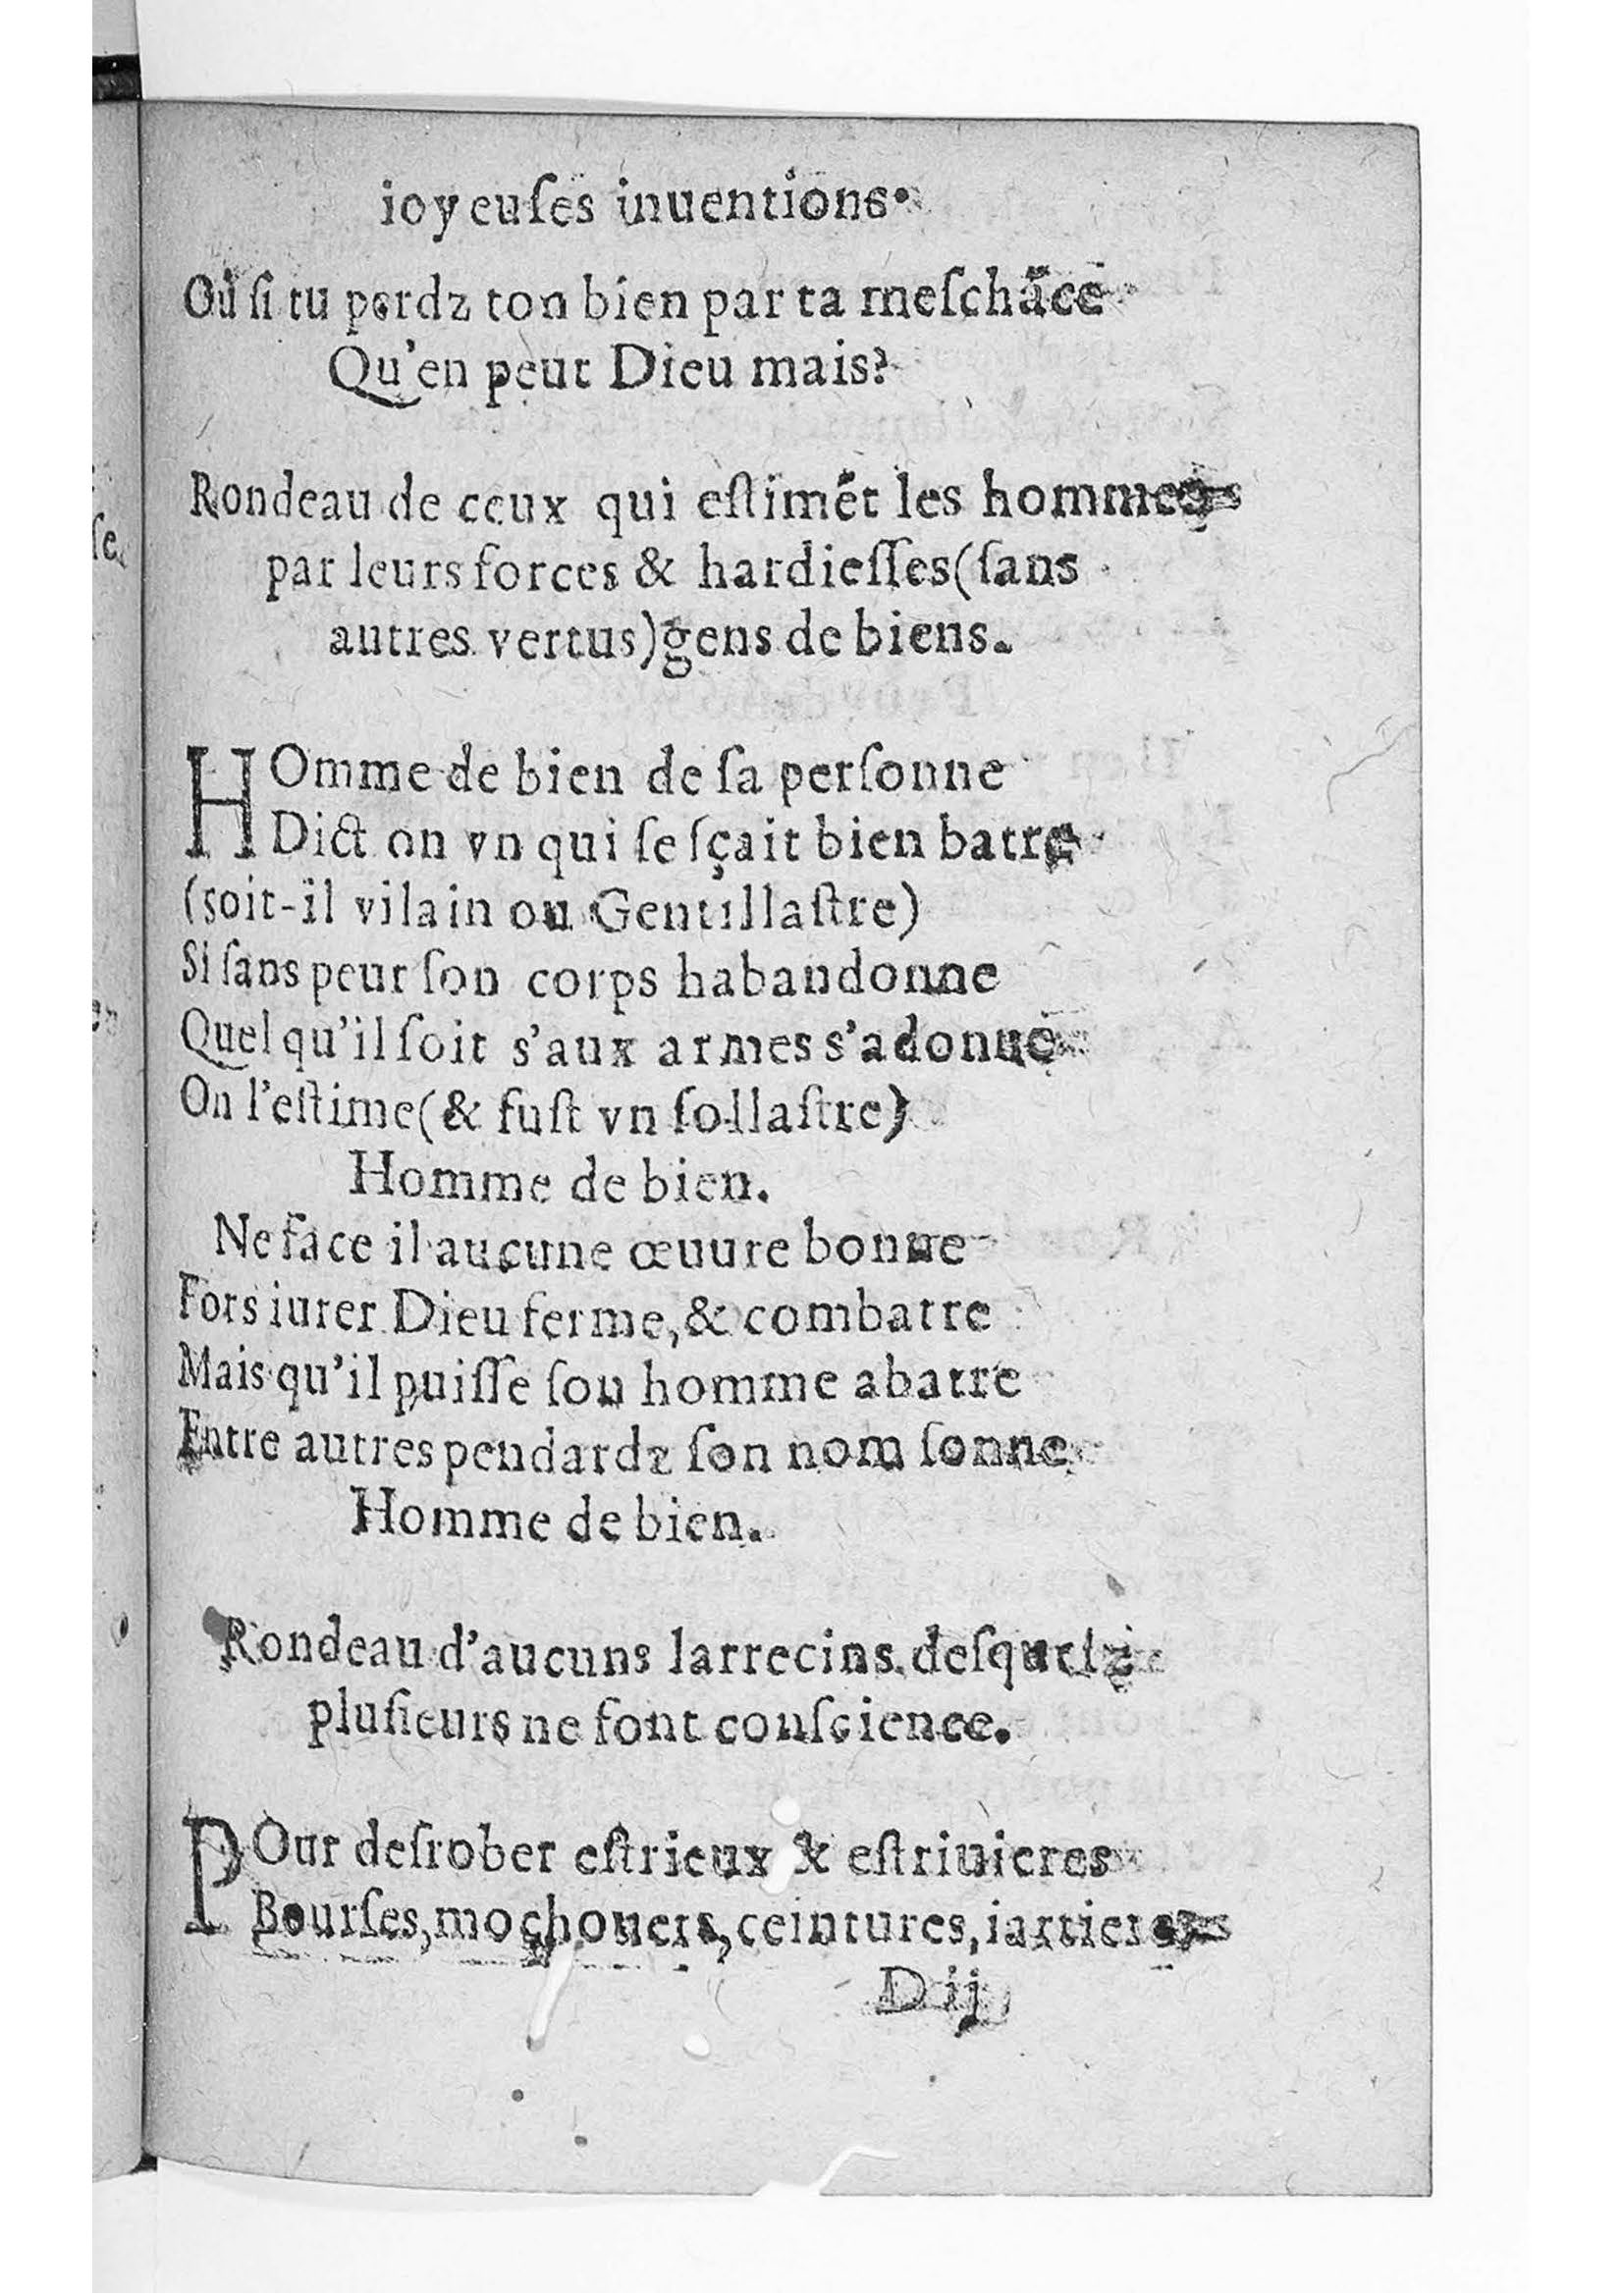 ioyeuſes inuentions.
Où ſi tu perdz ton bien par ta meſchãce
Qu'en peut Dieu mais?
Rondeau de ceux qui eſtimẽt les hommes
par leurs forces & hardieſſes (ſans
autres vertus) gens de biens.
HOmme de bien de ſa perſonne
Dict on vn qui ſe ſçait bien batre
(soit-il vilain ou Gentillaſtre)
Si ſans peur ſon corps habandonne
Quel qu'il ſoit s'aux armes s'adonne
On l'eſtime (& fuſt vn follaſtre)
Homme de bien.
Ne face il aucune œuure bonne
Fors iurer Dieu ferme, & combatre
Mais qu'il puiſſe ſon homme abatre
Entre autres pendardz ſon nom ſonne
Homme de bien.
Rondeau d'aucuns larrecins, deſquelz
pluſieurs ne font conſcience.
POur deſrober eſtrieux & eſtriuieres
Bourſes, mochouers, ceintures, iartieres
D ij